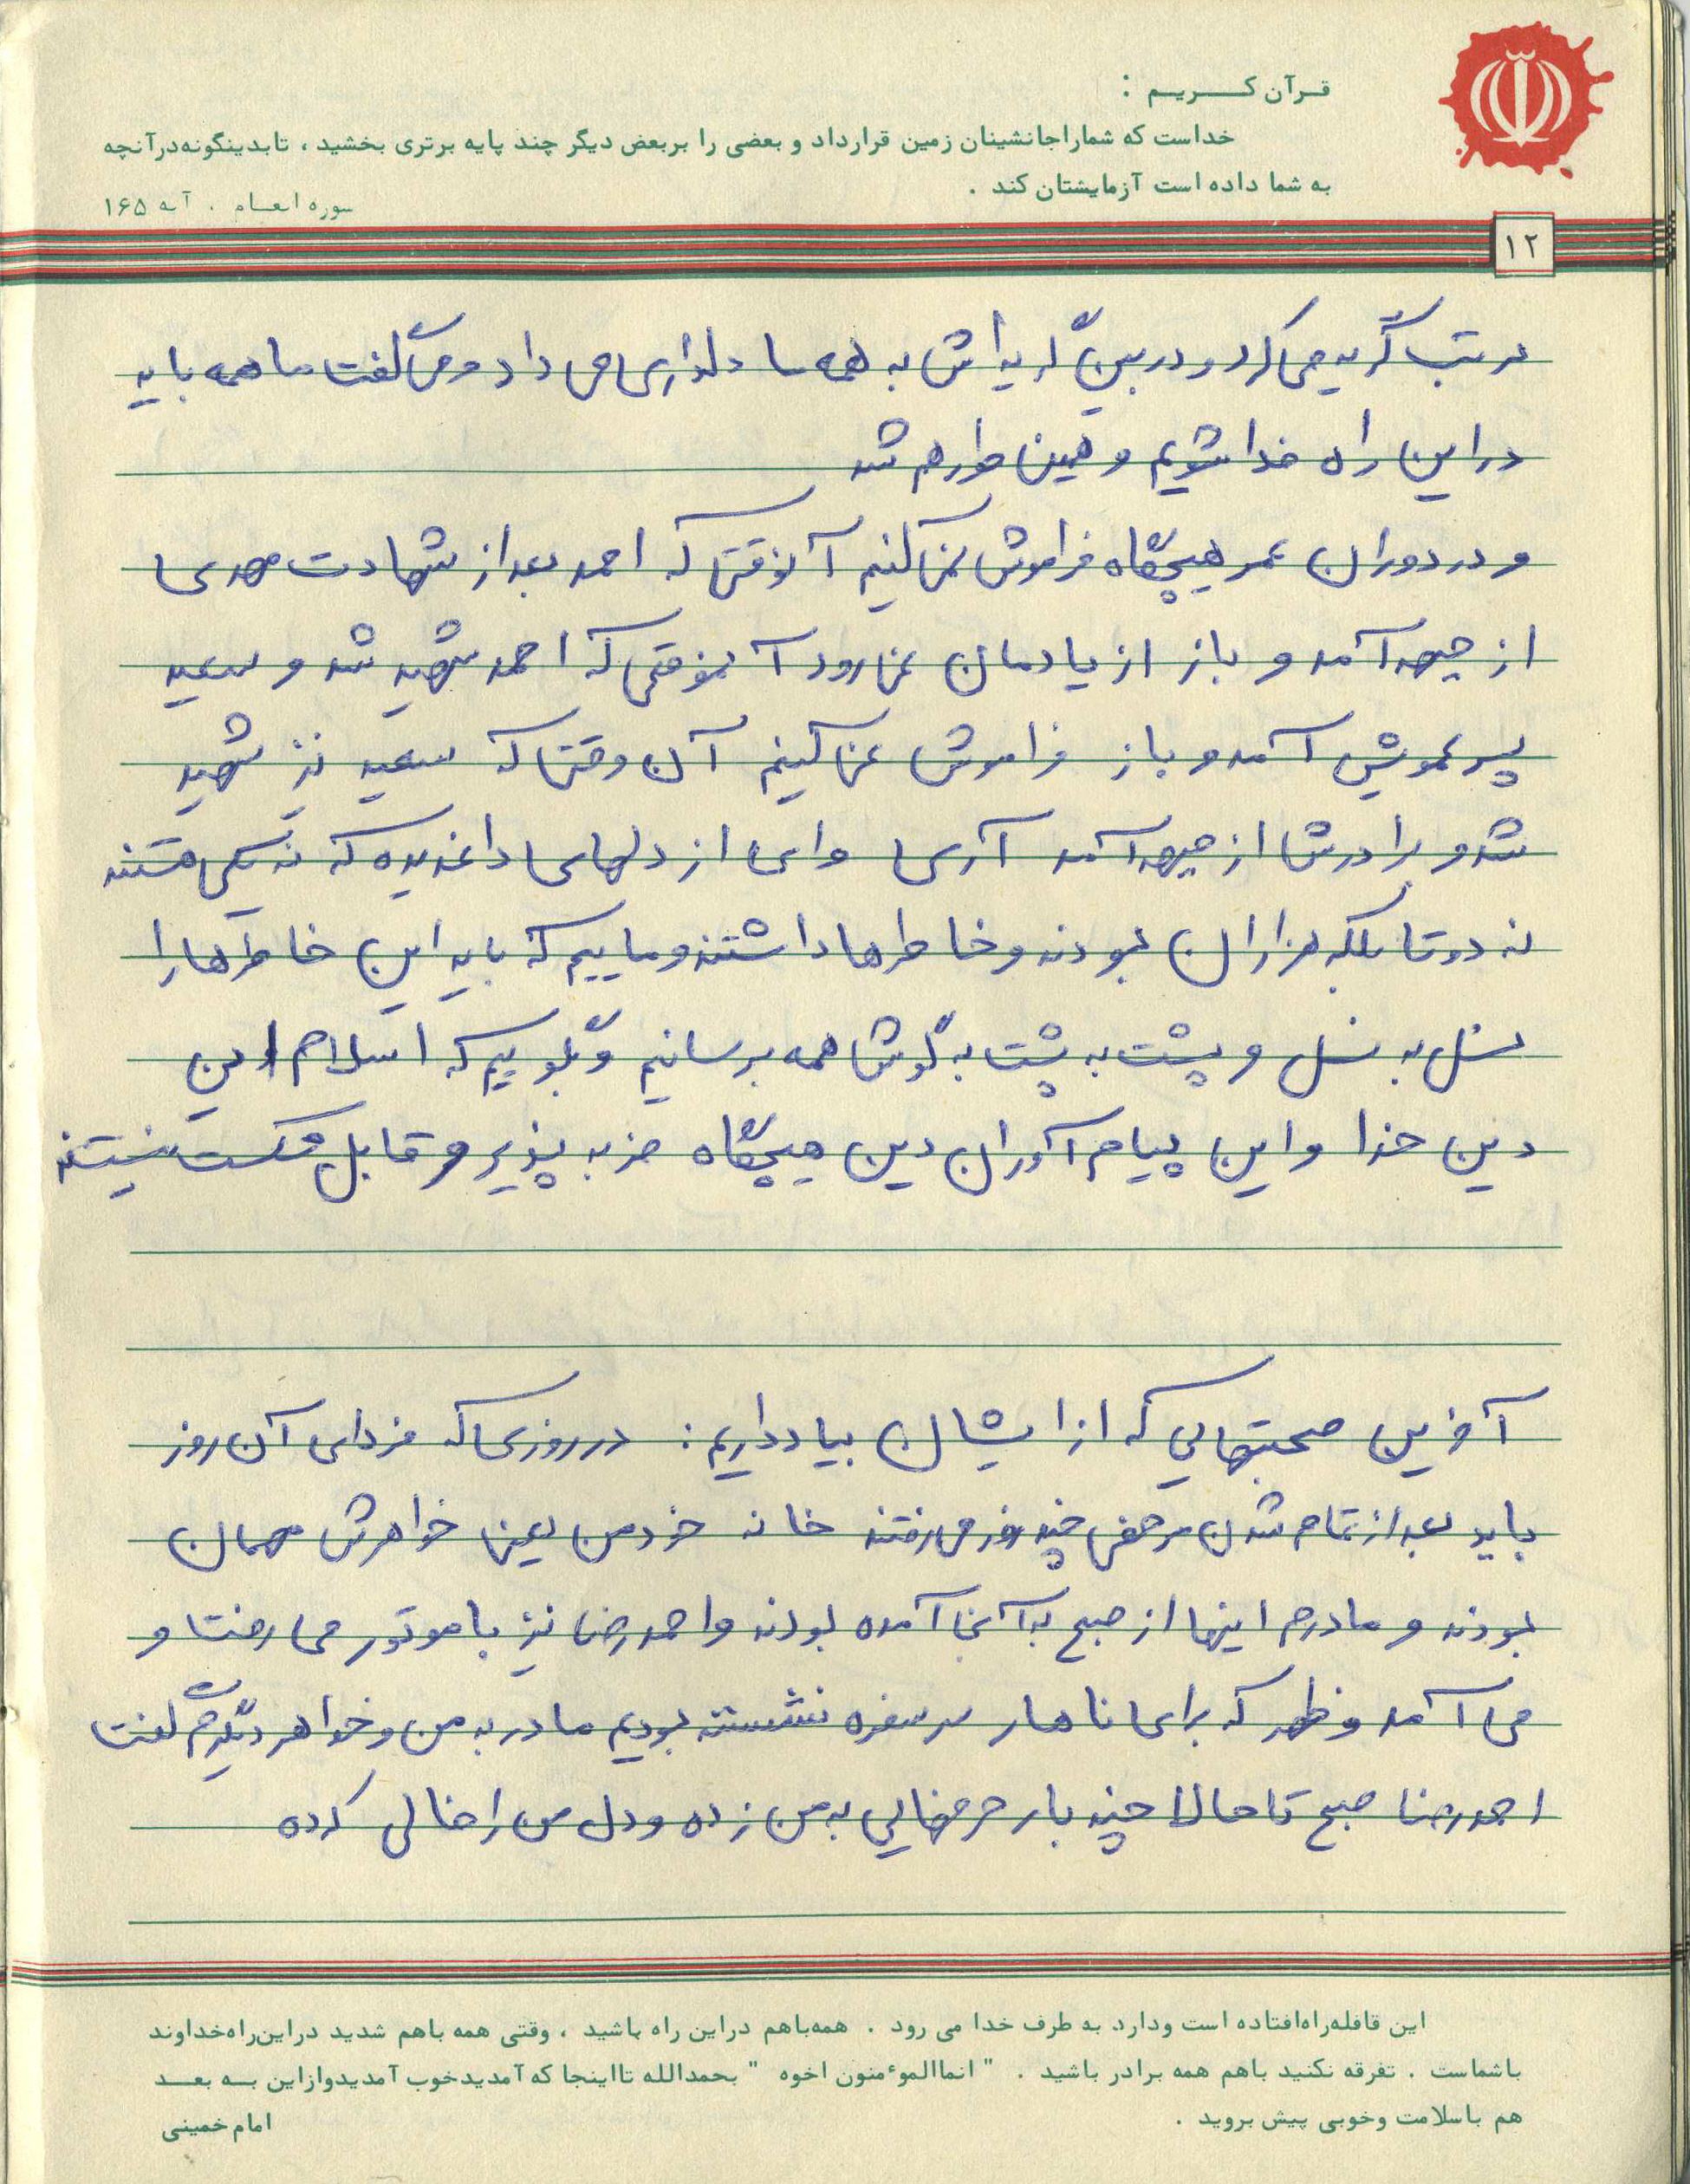 قرآن کریم :
خداست که شما را جانشینان زمین قرارداد و بعضی را بربعض دیگر چند پایه برتری بخشید ، تابدینگونه درآنچه
به شما داده است آزمایشتان کند .
سوره انعام . آیه ۱۶۵
۱۲
مرتب گریه می کرد و در بین گریه اش به همه ما دلداری می داد و می گفت ما همه باید
در این راه فدا شویم و همین طور هم شد
و در دوران عمر هیچگاه فراموش نمی کنیم آنوقتی که احمد بعد از شهادت مهدی
از جبهه آمد و باز از یادمان نمی رود آنموقعی که احمد شهید شد و سعید
پسر عمویش آمد و باز فراموش نمی کنیم آن وقتی که سعید نیز شهید
شد و برادرش از جبهه آمد آری وای از دلهای داغدیده که نه یکی هستند
نه دوتا بلکه هزاران بودند و خاطرها داشتند و ماییم که باید این خاطرها را
نسل به نسل و پشت به پشت به گوش همه برسانیم و بگوییم که اسلام این
دین خدا و این پیام آوران دین هیچگاه ضربه پذیر و قابل شکست نیستند
آخرین صحبتهایی که از ایشان بیاد داریم : در روزی که فردای آن روز
باید بعد از تمام شدن مرخصی چند روز می رفتند خانه خود من یعنی خواهرش مهمان
بودند و مادرم اینها از صبح به آنجا آمده بودند و احمدرضا نیز با موتور می رفت و
می آمد و ظهر که برای ناهار سر سفره نشسته بودیم مادر به من و خواهر دیگرم گفت
احمدرضا صبح تا حالا چند بار حرفهایی به من زده و دل من را خالی کرده
این قافله راه افتاده است ودارد به طرف خدا می رود . همه باهم دراین راه باشید ، وقتی همه باهم شدید دراین راه خداوند
باشماست . تفرقه نکنید باهم همه برادر باشید . " انما الموٴمنون اخوه " بحمدالله تا اینجا که آمدید خوب آمدید وازاین به بعد
هم باسلامت وخوبی پیش بروید .
امام خمینی